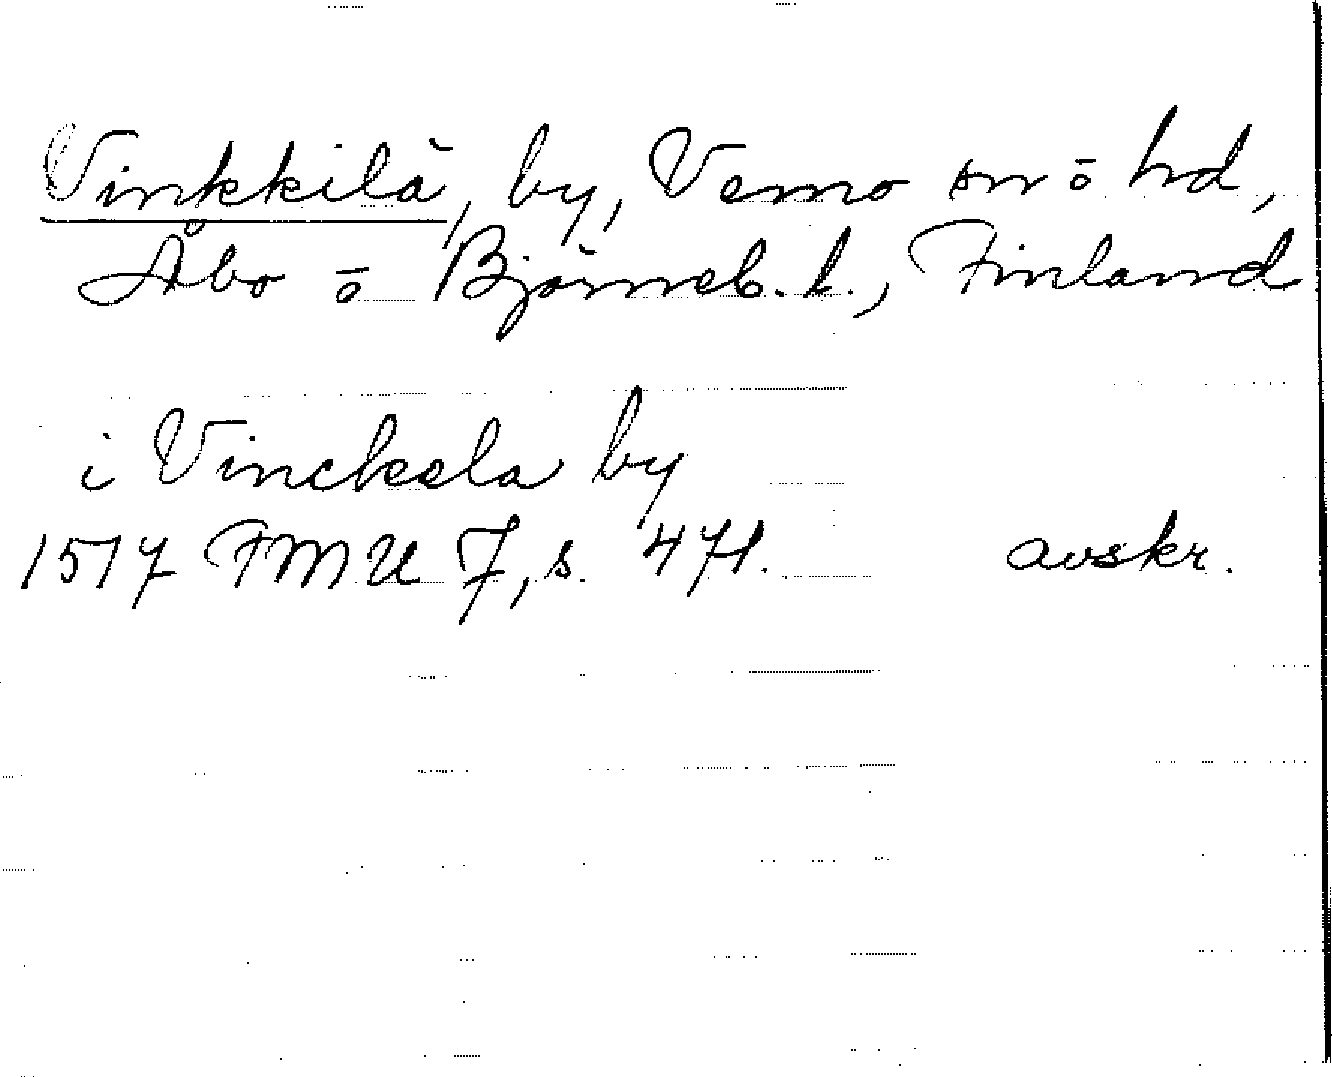 Vinkkilä, by, Vemo sn ō hd,
Åbo ō Björneb. l., Finland
i Vinckela by
1517 FMU 7, s. 471. avskr.